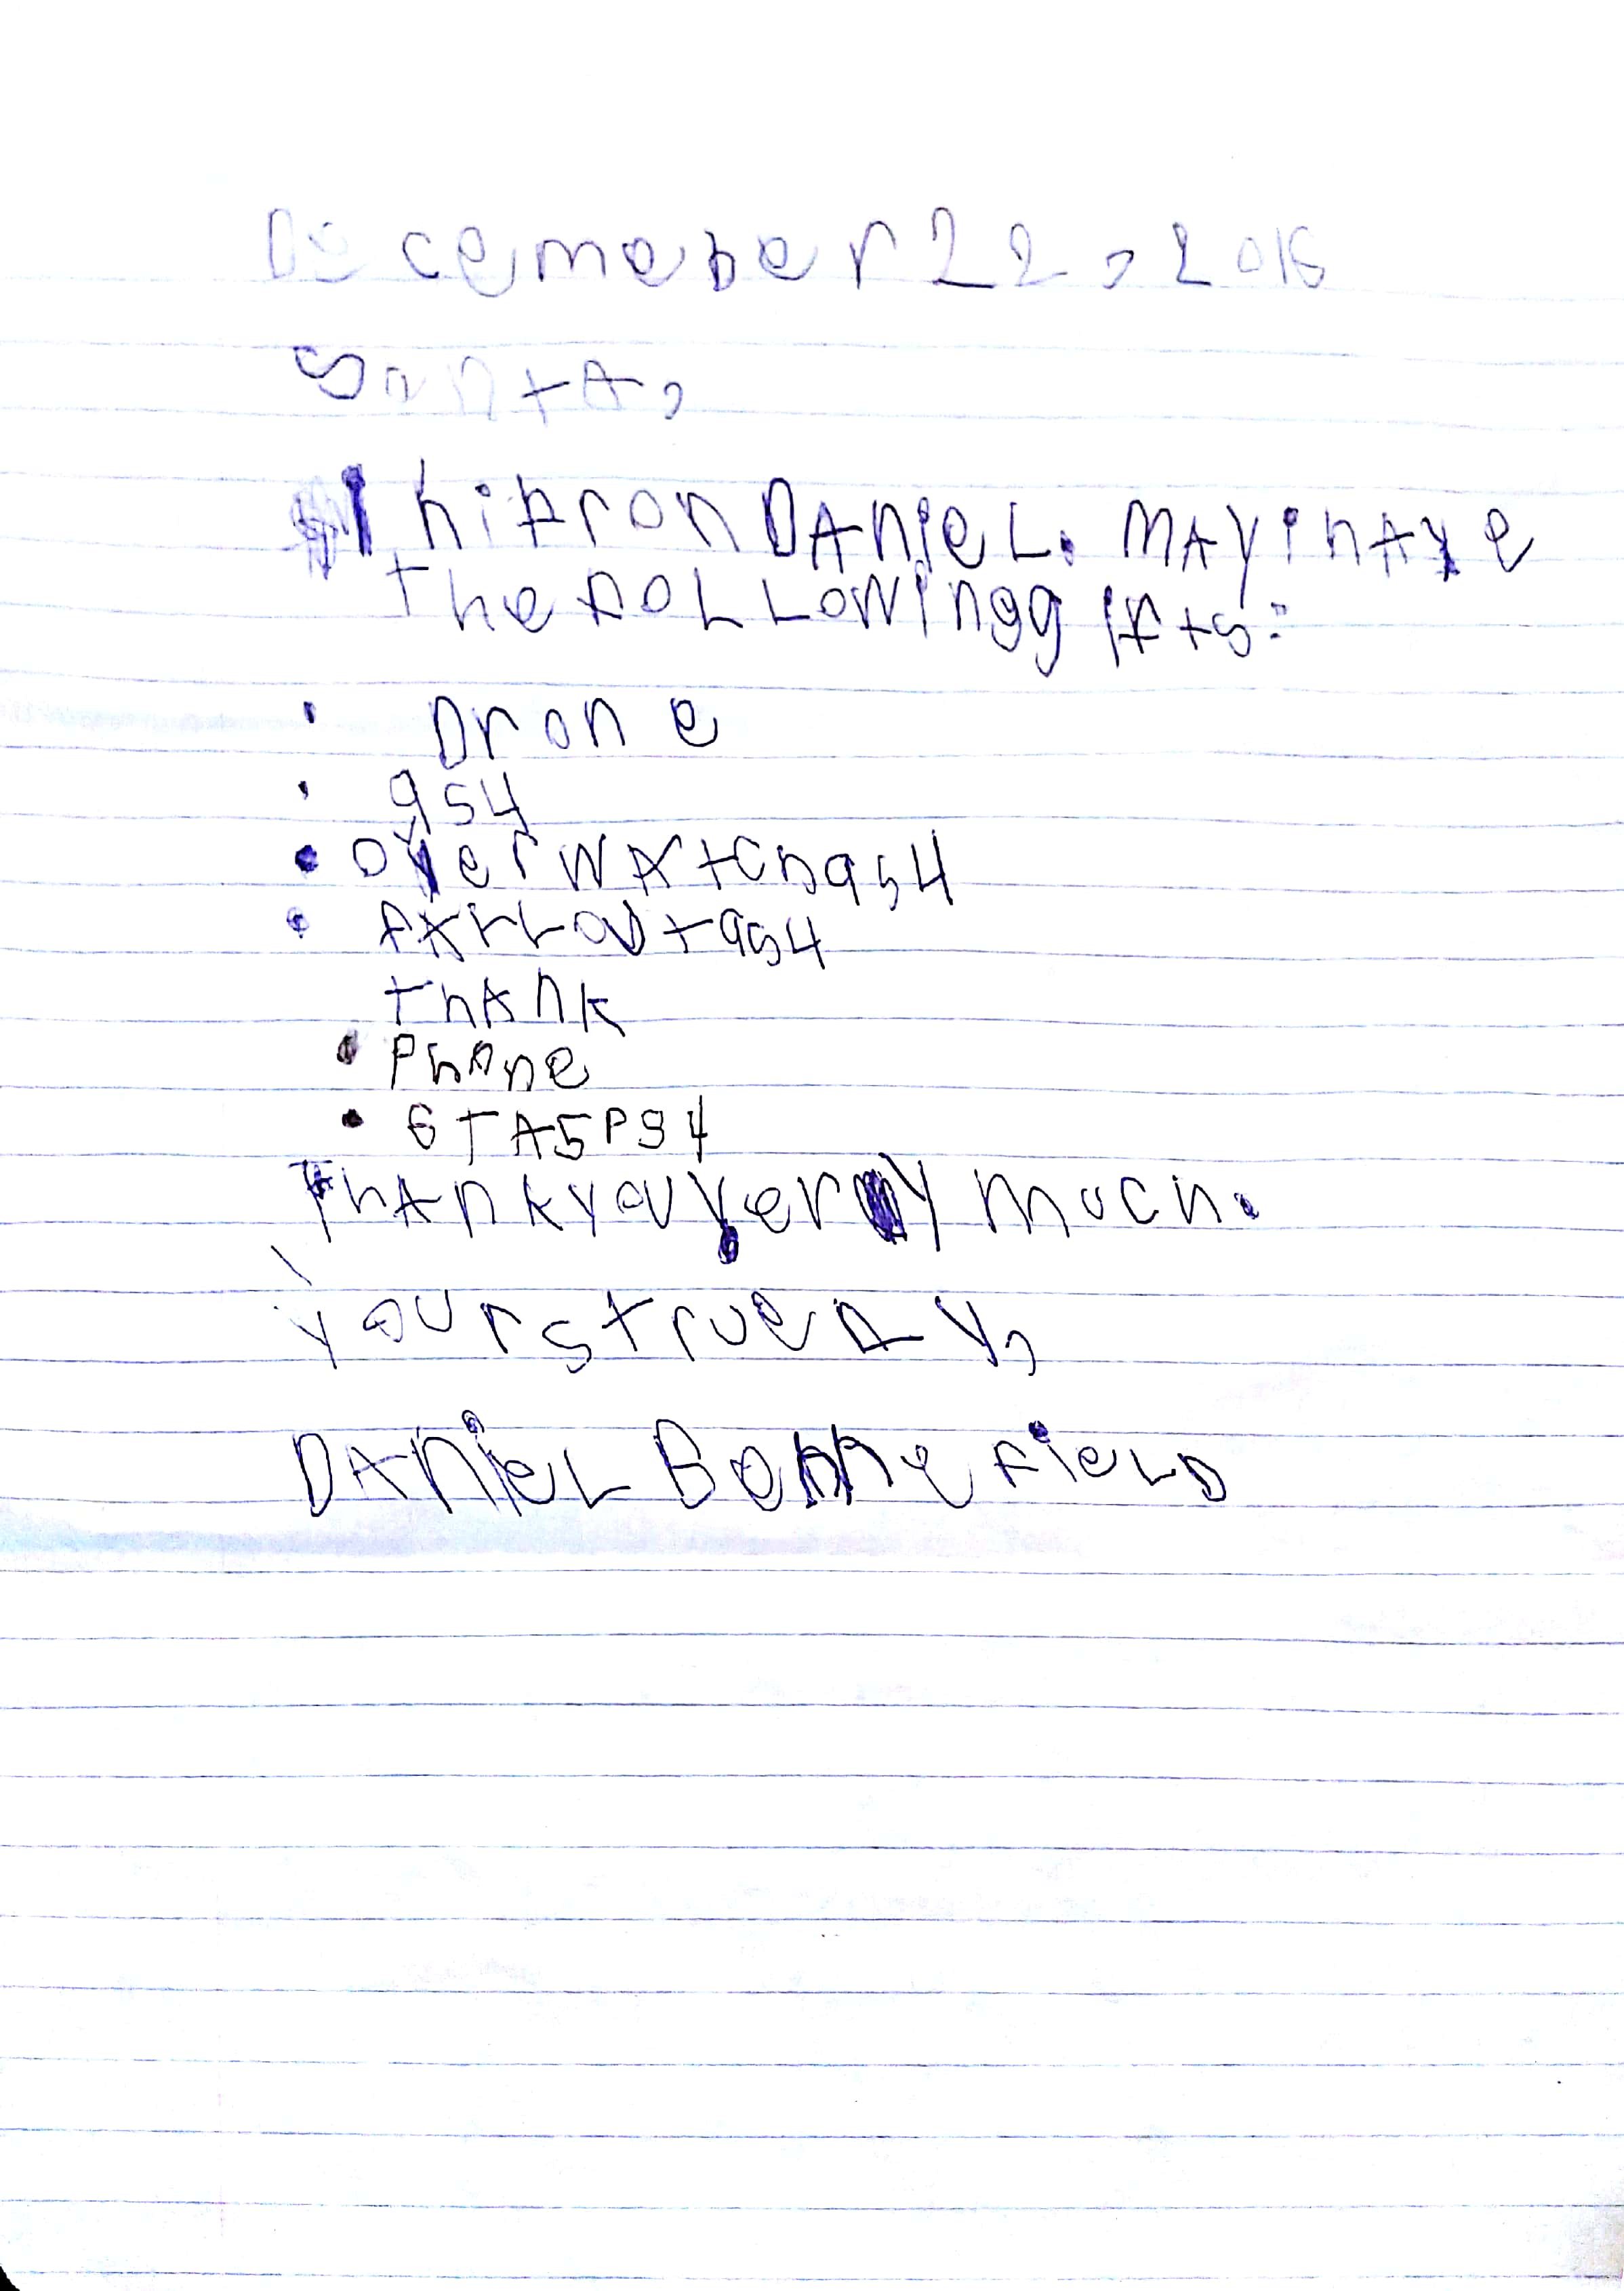 Decemeber 22, 2016
SantA,
hi from DANieL. MAY i hAve
the foLLowing gifts:
• Drone
• PS4
• OverwAtch PS4
• fALLout PS4
thAnk
• Phone
• GTA5 PS4
ThAnk you very much.
yours truely,
DANieL BennefieLD